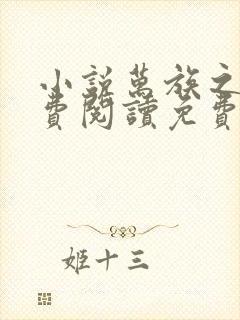 小説萬族之
費閱讀免費
姬十三